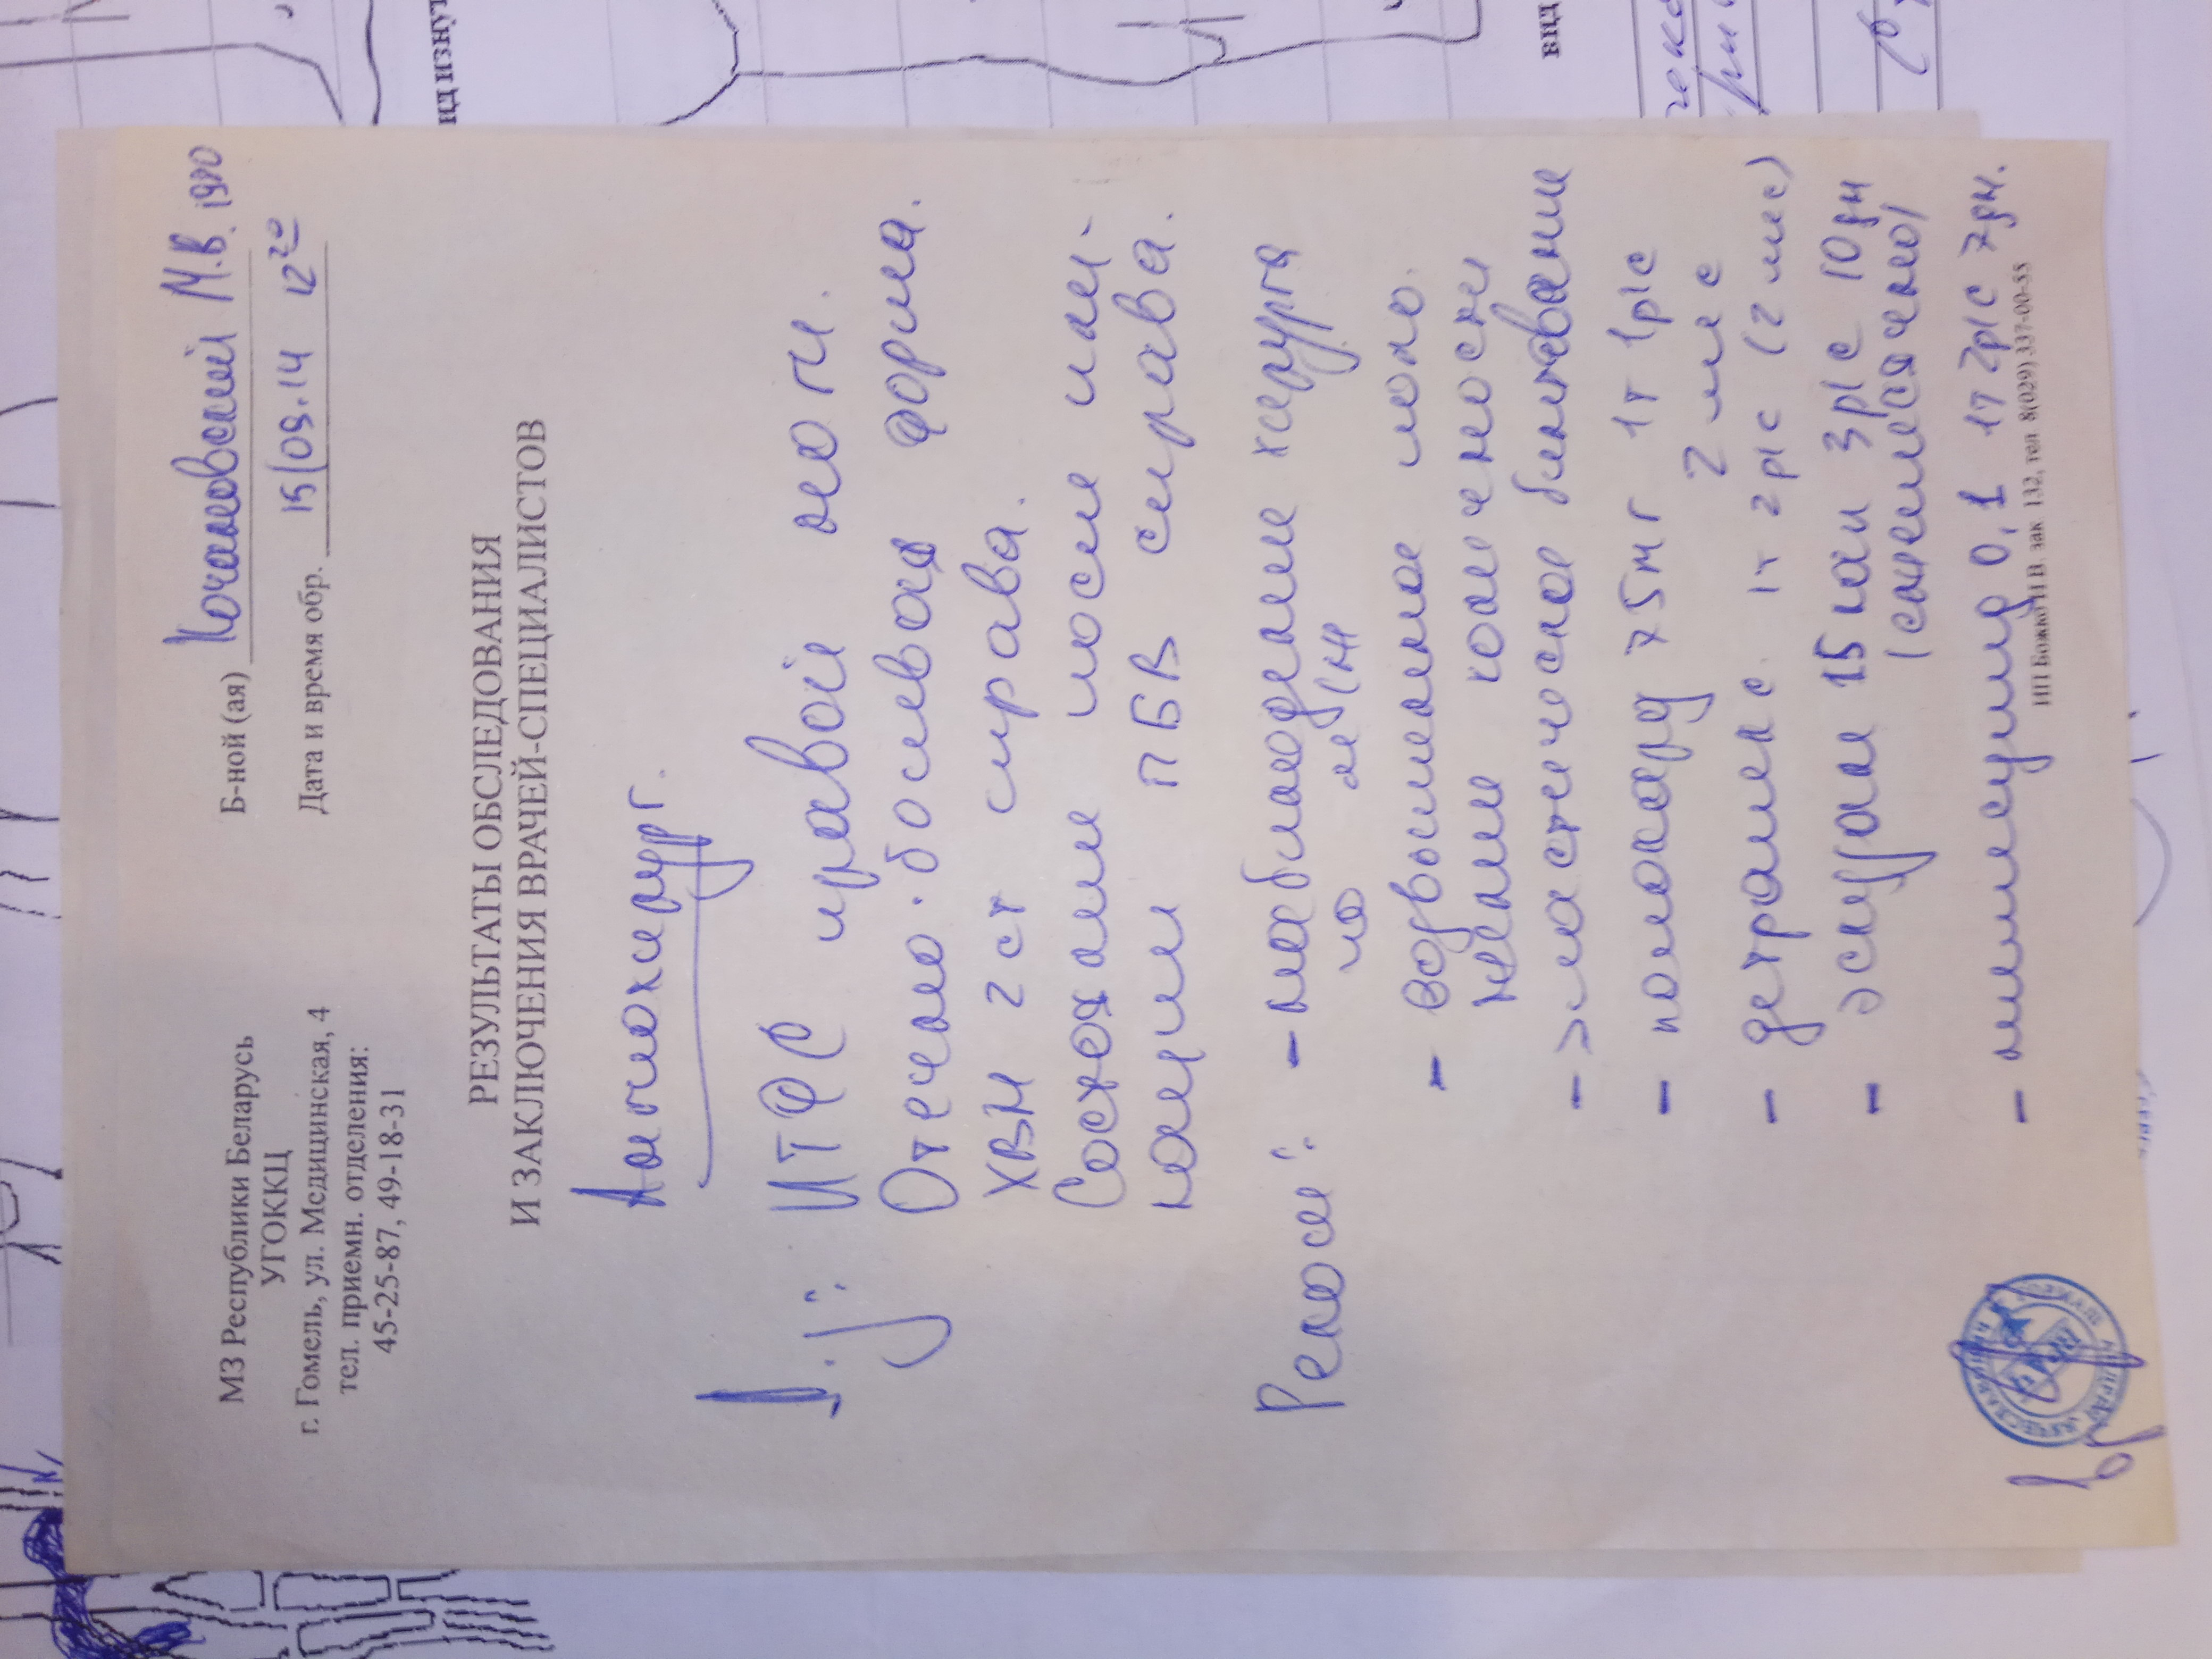 МЗ Республики Беларусь
УГОККЦ
г. Гомель, ул. Медицинская, 4
тел. приемн. отделения:
45-25-87, 49-18-31
Б-ной (ая) Кочановский М.В. 1980
Дата и время обр. 15/09.14 12 20
РЕЗУЛЬТАТЫ ОБСЛЕДОВАНИЯ
И ЗАКЛЮЧЕНИЯ ВРАЧЕЙ-СПЕЦИАЛИСТОВ
Ангиохирург.
ПТФС правой ноги.
Отечно-болевая форма.
ХВН 2 ст справа.
Состояние после пли-
кации ПБВ справа.
Реком: - наблюдение хирурга
по м/ж
- возвышенное поло-
жение конечности
- эластическое бинтование
- поLокард 75мг 1т 1р/с
2 мес
- детралекс 1т 2р/с (2 мес)
- эскузан 15 кап 3р/с 10дн
(ежемесячно)
- нимесулид 0,1 1т 2р/с 7дн.
ИП Божко И.В. зак. 132, тел. 8(029) 337-00-55
вид